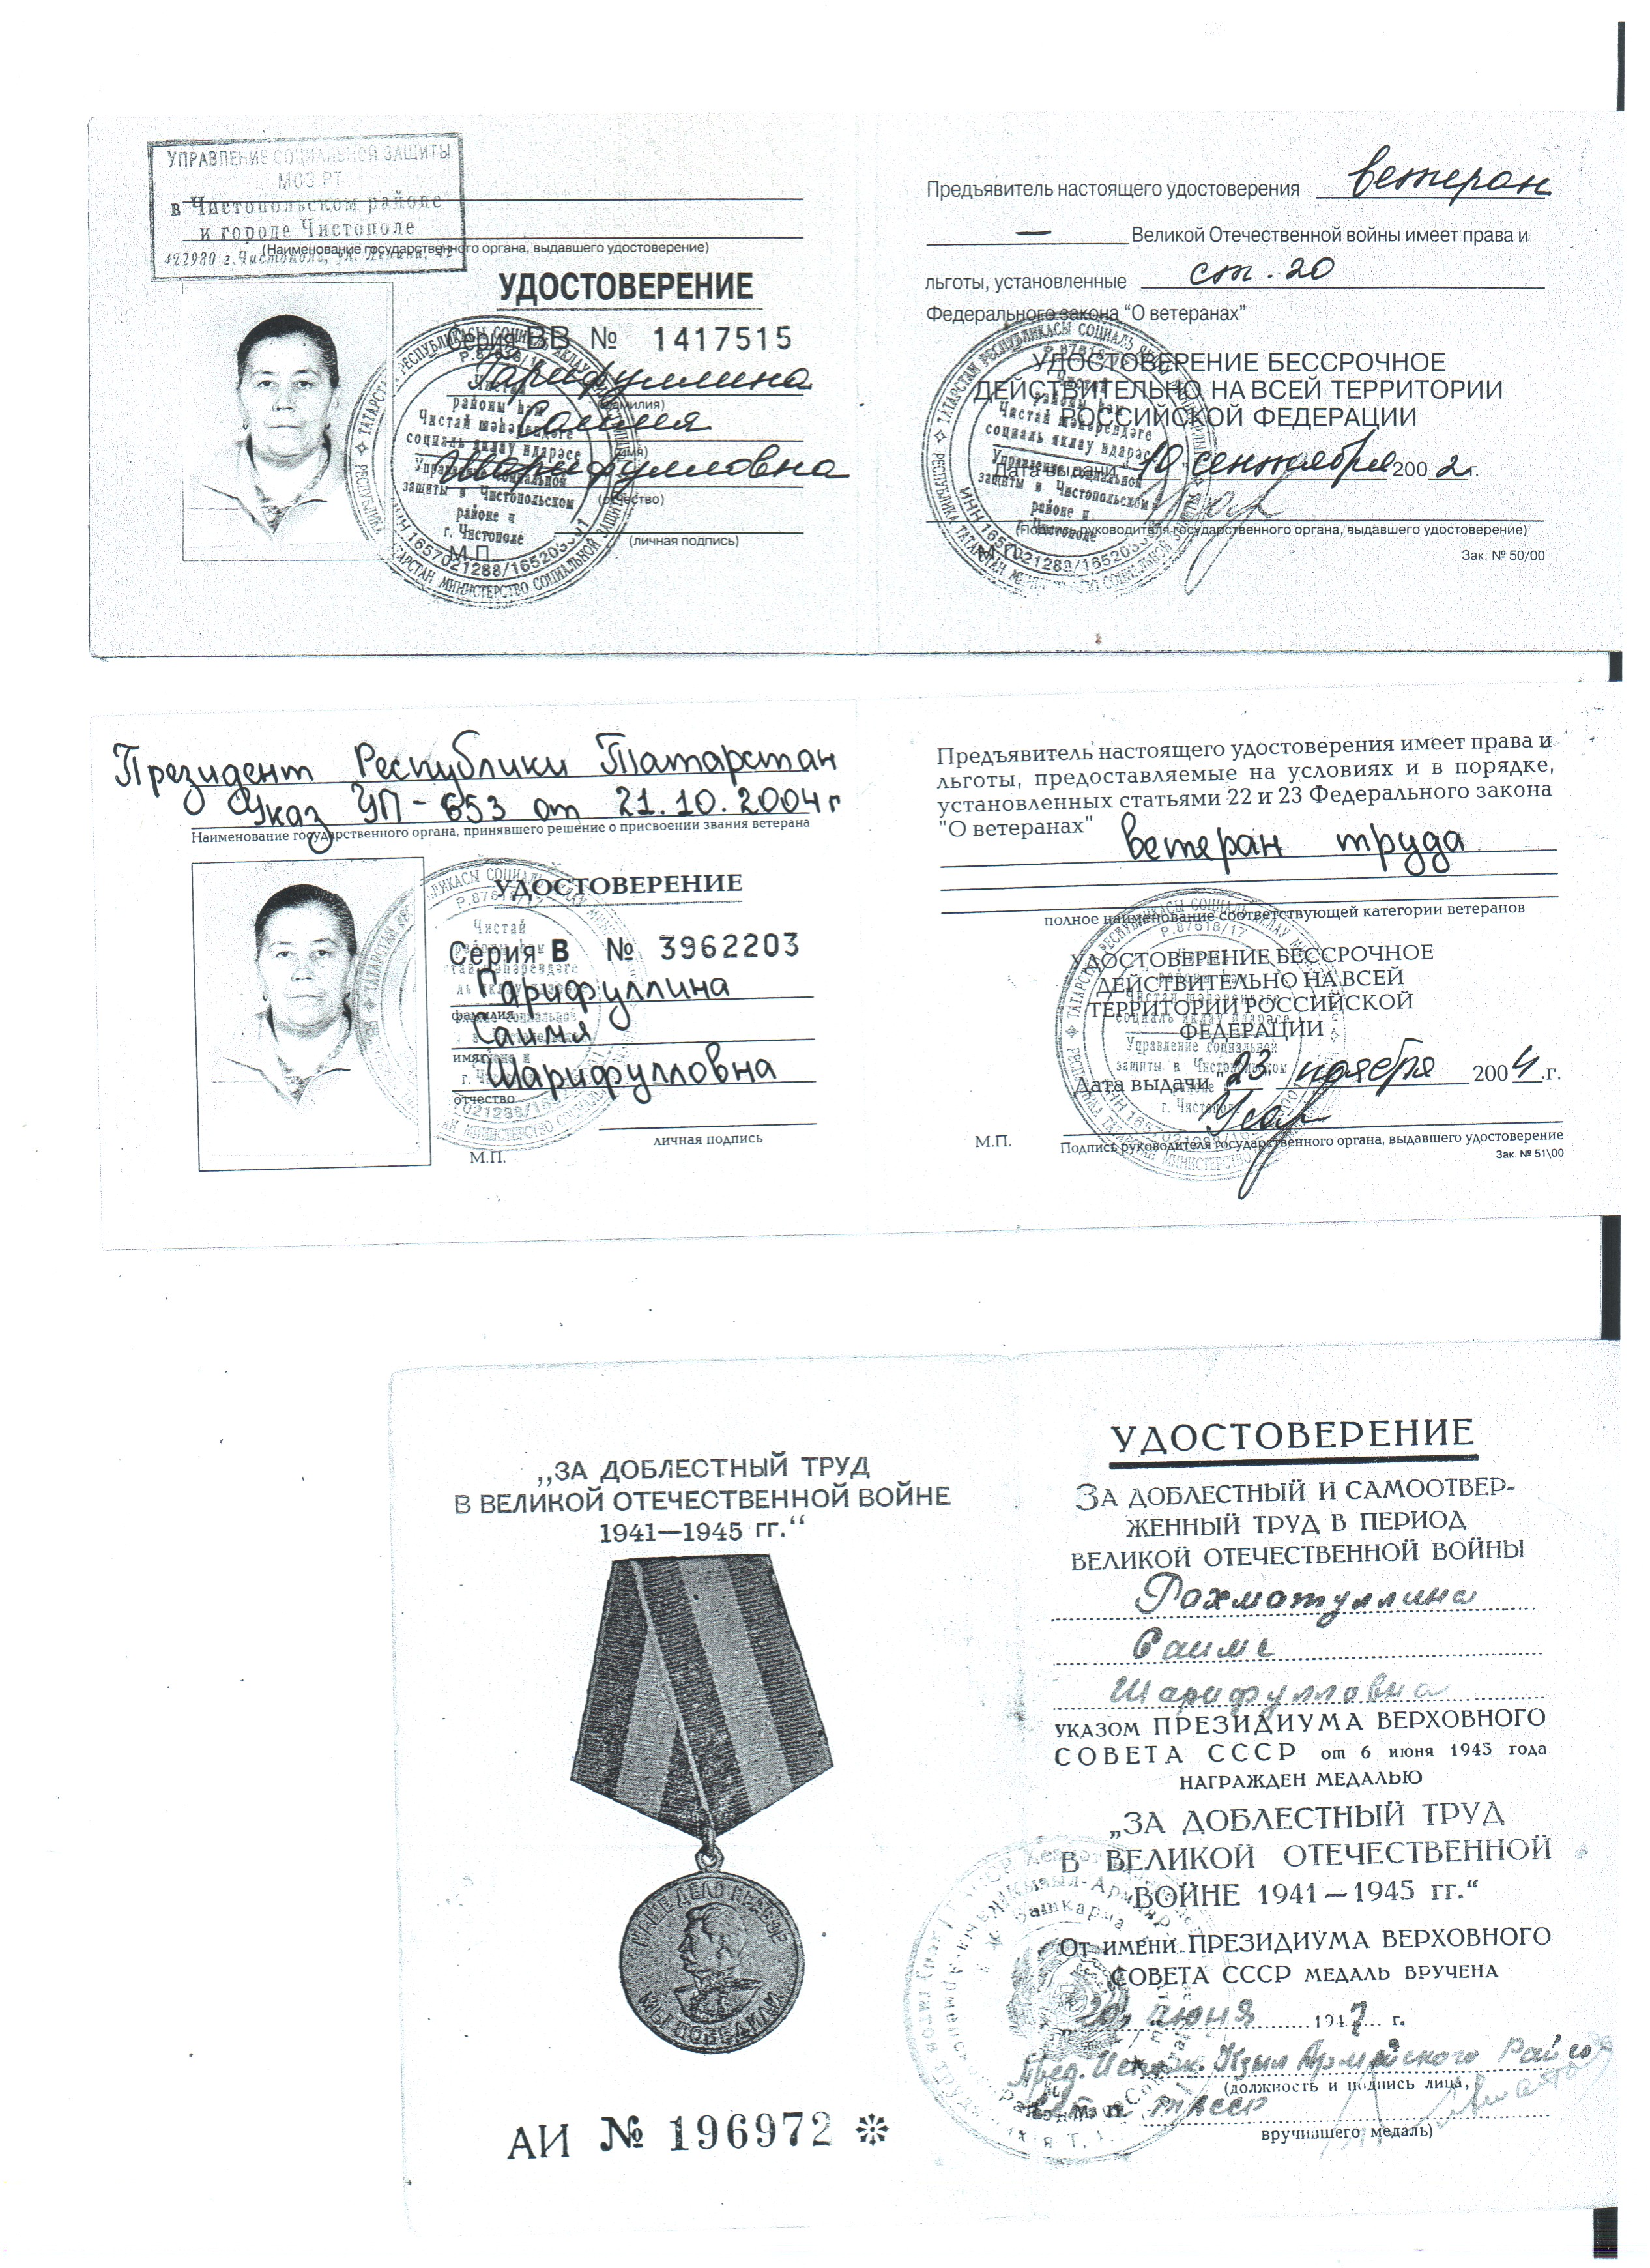 УПРАВЛЕНИЕ СОЦИАЛЬНОЙ ЗАЩИТЫ
МСЗ РТ
в Чистопольском районе
и городе Чистополе
(Наименование государственного органа, выдавшего удостоверение)
422980 г.Чистополь, ул. Ленина,
УДОСТОВЕРЕНИЕ
Серия ВВ № 1417515
Гарифуллина
(фамилия)
Саимя
(имя)
Шарифулловна
(отчество)
(личная подпись)
М.П.
Чистай шәһәрендәге
социаль яклау идарәсе
Управление социальной
защиты в Чистопольском
районе и
г. Чистополе
Предъявитель настоящего удостоверения ветеран
— Великой Отечественной войны имеет права и
льготы, установленные ст. 20
Федерального закона "О ветеранах"
УДОСТОВЕРЕНИЕ БЕССРОЧНОЕ
ДЕЙСТВИТЕЛЬНО НА ВСЕЙ ТЕРРИТОРИИ
РОССИЙСКОЙ ФЕДЕРАЦИИ
Дата выдачи "10" сентября 2002 г.
(Подпись руководителя государственного органа, выдавшего удостоверение)
М.П.
Зак. № 50/00
Президент Республики Татарстан
Указ УП-653 от 21.10.2004г
Наименование государственного органа, принявшего решение о присвоении звания ветерана
УДОСТОВЕРЕНИЕ
Серия В № 3962203
Гарифуллина
фамилия
Саимя
имя
Шарифулловна
отчество
личная подпись
М.П.
Предъявитель настоящего удостоверения имеет права и
льготы, предоставляемые на условиях и в порядке,
установленных статьями 22 и 23 Федерального закона
"О ветеранах"
ветеран труда
полное наименование соответствующей категории ветеранов
УДОСТОВЕРЕНИЕ БЕССРОЧНОЕ
ДЕЙСТВИТЕЛЬНО НА ВСЕЙ
ТЕРРИТОРИИ РОССИЙСКОЙ
ФЕДЕРАЦИИ
Дата выдачи 23 ноября 2004 .г.
М.П.
Подпись руководителя государственного органа, выдавшего удостоверение
Зак. № 51\00
„ЗА ДОБЛЕСТНЫЙ ТРУД
В ВЕЛИКОЙ ОТЕЧЕСТВЕННОЙ ВОЙНЕ
1941—1945 гг.“
НАШЕ ДЕЛО ПРАВОЕ
МЫ ПОБЕДИЛИ
АИ № 196972
УДОСТОВЕРЕНИЕ
ЗА ДОБЛЕСТНЫЙ И САМООТВЕР-
ЖЕННЫЙ ТРУД В ПЕРИОД
ВЕЛИКОЙ ОТЕЧЕСТВЕННОЙ ВОЙНЫ
Рахматуллина
Саиме
Шарифулловна
УКАЗОМ ПРЕЗИДИУМА ВЕРХОВНОГО
СОВЕТА СССР от 6 июня 1945 года
НАГРАЖДЕН МЕДАЛЬЮ
„ЗА ДОБЛЕСТНЫЙ ТРУД
В ВЕЛИКОЙ ОТЕЧЕСТВЕННОЙ
ВОЙНЕ 1941—1945 гг.“
ОТ ИМЕНИ ПРЕЗИДИУМА ВЕРХОВНОГО
СОВЕТА СССР МЕДАЛЬ ВРУЧЕНА
июня 1947 г.
Пред. Кзыл Армейского Райсо-
(должность и подпись лица,
ТАССР
вручившего медаль)